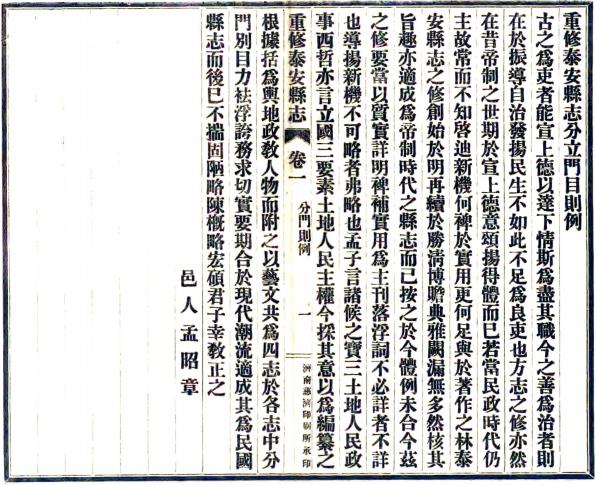 重修泰安縣志分立門目則例
古之爲吏者能宣上德以達下情斯爲盡其職今之善爲治者則
在於振導自治發揚民生不如此不足爲良吏也方志之修亦然
在昔帝制之世期於宣上德意頌揚得體而已若當民政時代仍
主故常而不知啓迪新機何裨於實用更何足與於著作之林泰
安縣志之修創始於明再續於勝清博贍典雅闕漏無多然核其
旨趣亦適成爲帝制時代之縣志而已按之於今體例未合今茲
之修要當以質實詳明裨補實用爲主刊落浮詞不必詳者不詳
也導揚新機不可略者弗略也孟子言諸候之寶三土地人民政
事西哲亦言立國三要素土地人民主權今採其意以爲編纂之
重修泰安縣志
卷一
分門則例
一
濟南慈濟印刷所承印
根據括爲輿地政敎人物而附之以藝文共爲四志於各志中分
門別目力袪浮誇務求切實要期合於現代潮流適成其爲民國
縣志而後已不揣固陋略陳概略宏碩君子幸敎正之
邑人孟昭章